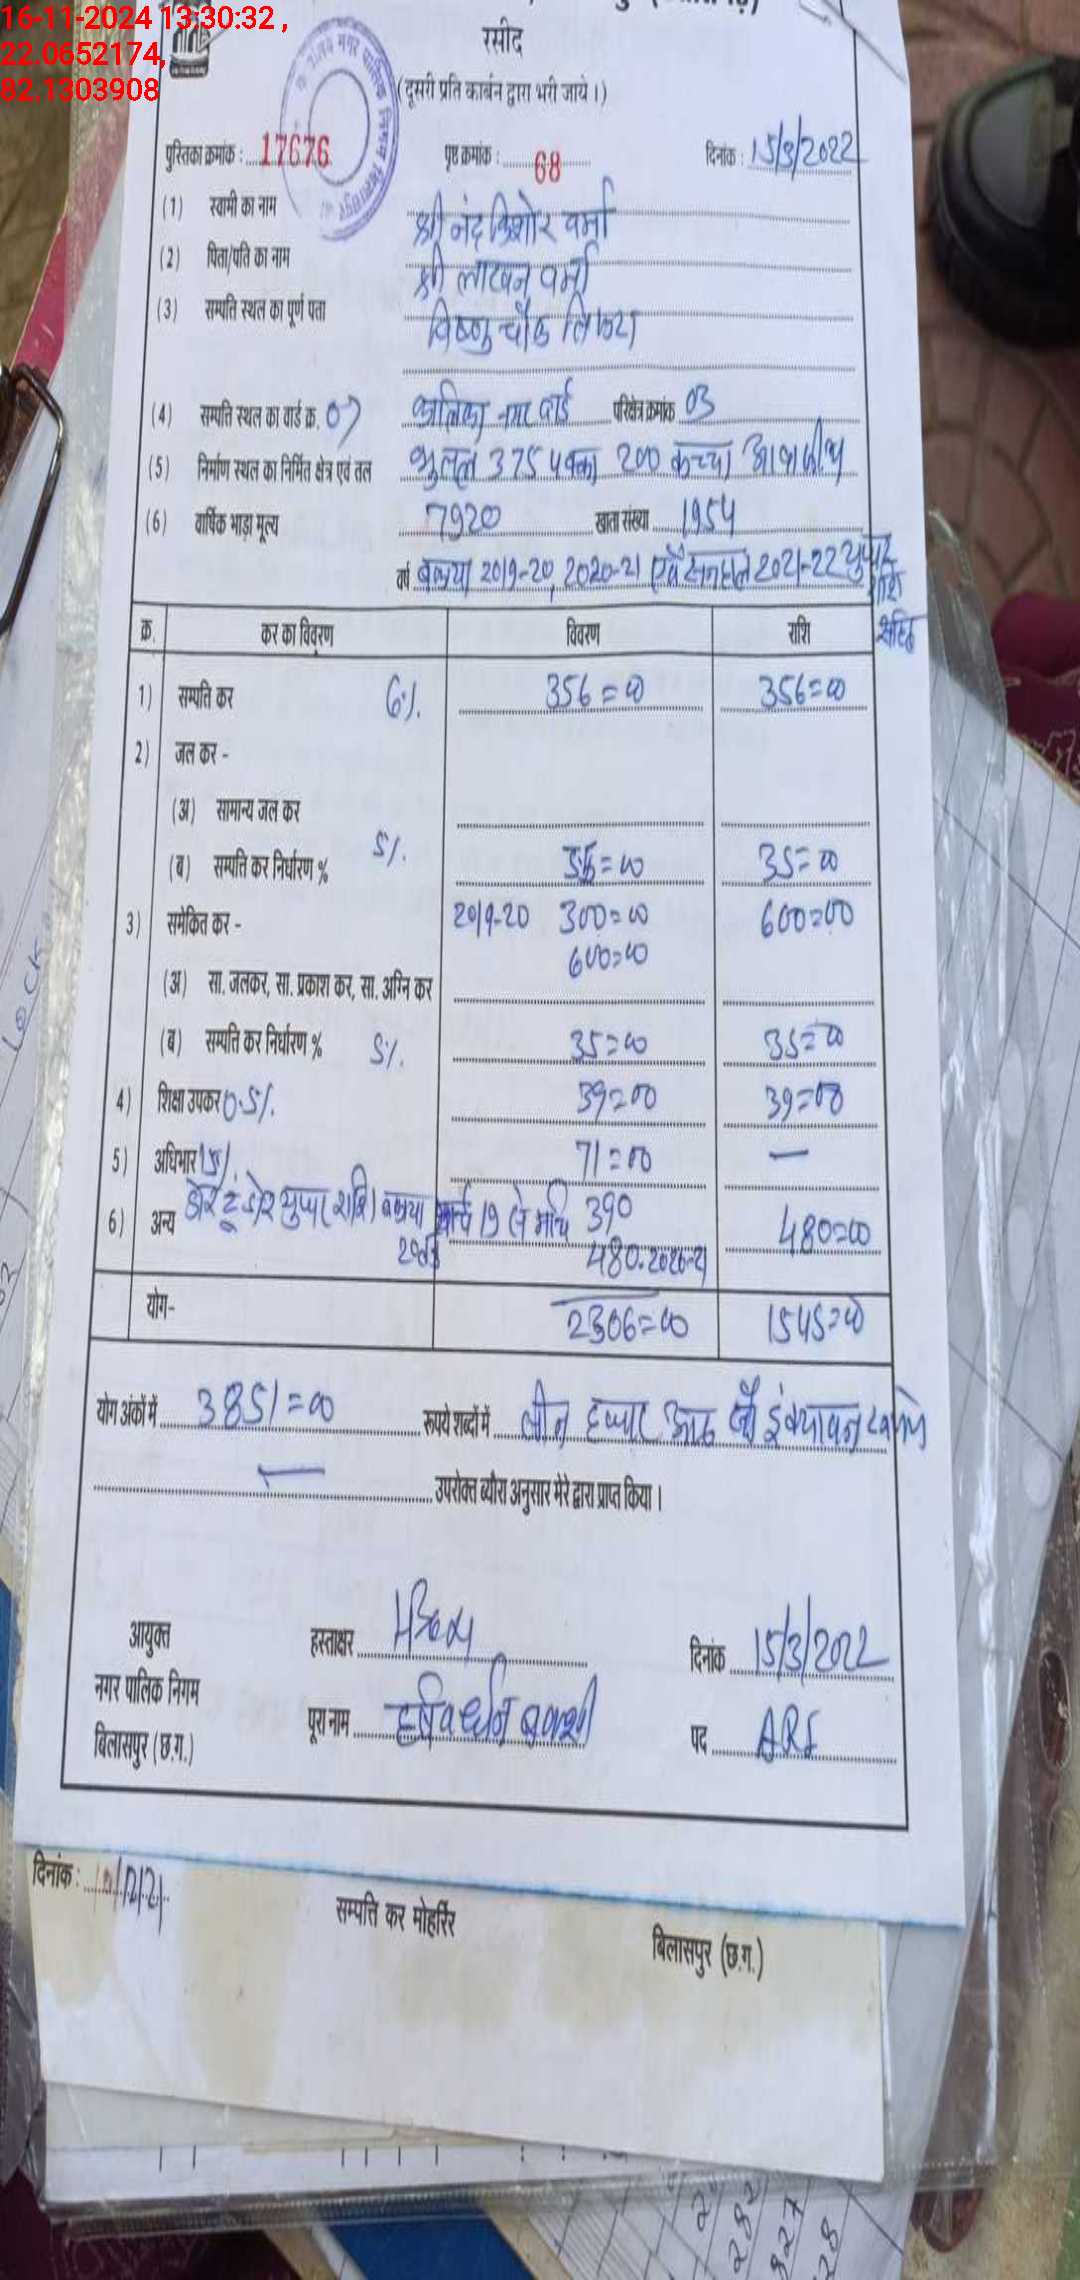 16-11-2024 13:30:32 ,
22.0652174,
82.1303908
रसीद
(दूसरी प्रति कार्बन द्वारा भरी जाये।)
पुस्तिका क्रमांक : 17676 पृष्ठ क्रमांक : 68 दिनांक : 15/3/2022
(1) स्वामी का नाम श्री नंद किशोर वर्मा
(2) पिता/पति का नाम श्री लाखन वर्मा
(3) सम्पति स्थल का पूर्ण पता विष्णु चौक
(4) सम्पति स्थल का वार्ड क्र. 07 कालिका नगर वार्ड परिक्षेत्र क्रमांक 03
(5) निर्माण स्थल का निर्मित क्षेत्र एवं तल भुतल 375 पक्का 200 कच्चा आवासीय
(6) वार्षिक भाड़ा मूल्य 7920 खाता संख्या 1954
वर्ष बकाया 2019-20, 2020-21 एवं 2021-22
क्र. कर का विवरण विवरण राशि
1) सम्पति कर 6%. 356=00 356=00
2) जल कर -
(अ) सामान्य जल कर
(ब) सम्पत्ति कर निर्धारण % 5%. 35=00 35=00
3) समेकित कर - 2019-20 300=00 600=00
600=00
(अ) सा. जलकर, सा. प्रकाश कर, सा. अग्नि कर
(ब) सम्पत्ति कर निर्धारण % 5%. 35=00 35=00
4) शिक्षा उपकर 0.5%. 39=00 39=00
5) अधिभार 71=00 —
6) अन्य डोर टू डोर बकाया 19 से मार्च 390 480=00
480. 2020-21
योग- 2306=00 1545=00
योग अंकों में 3851=00 रूपये शब्दों में तीन हजार आठ सौ इंक्यावन
उपरोक्त ब्यौरा अनुसार मेरे द्वारा प्राप्त किया।
आयुक्त हस्ताक्षर दिनांक 15/3/2022
नगर पालिक निगम पूरा नाम हर्षवर्धन पद ARI
बिलासपुर (छ.ग.)
दिनांक :
सम्पत्ति कर मोहर्रिर
बिलासपुर (छ.ग.)